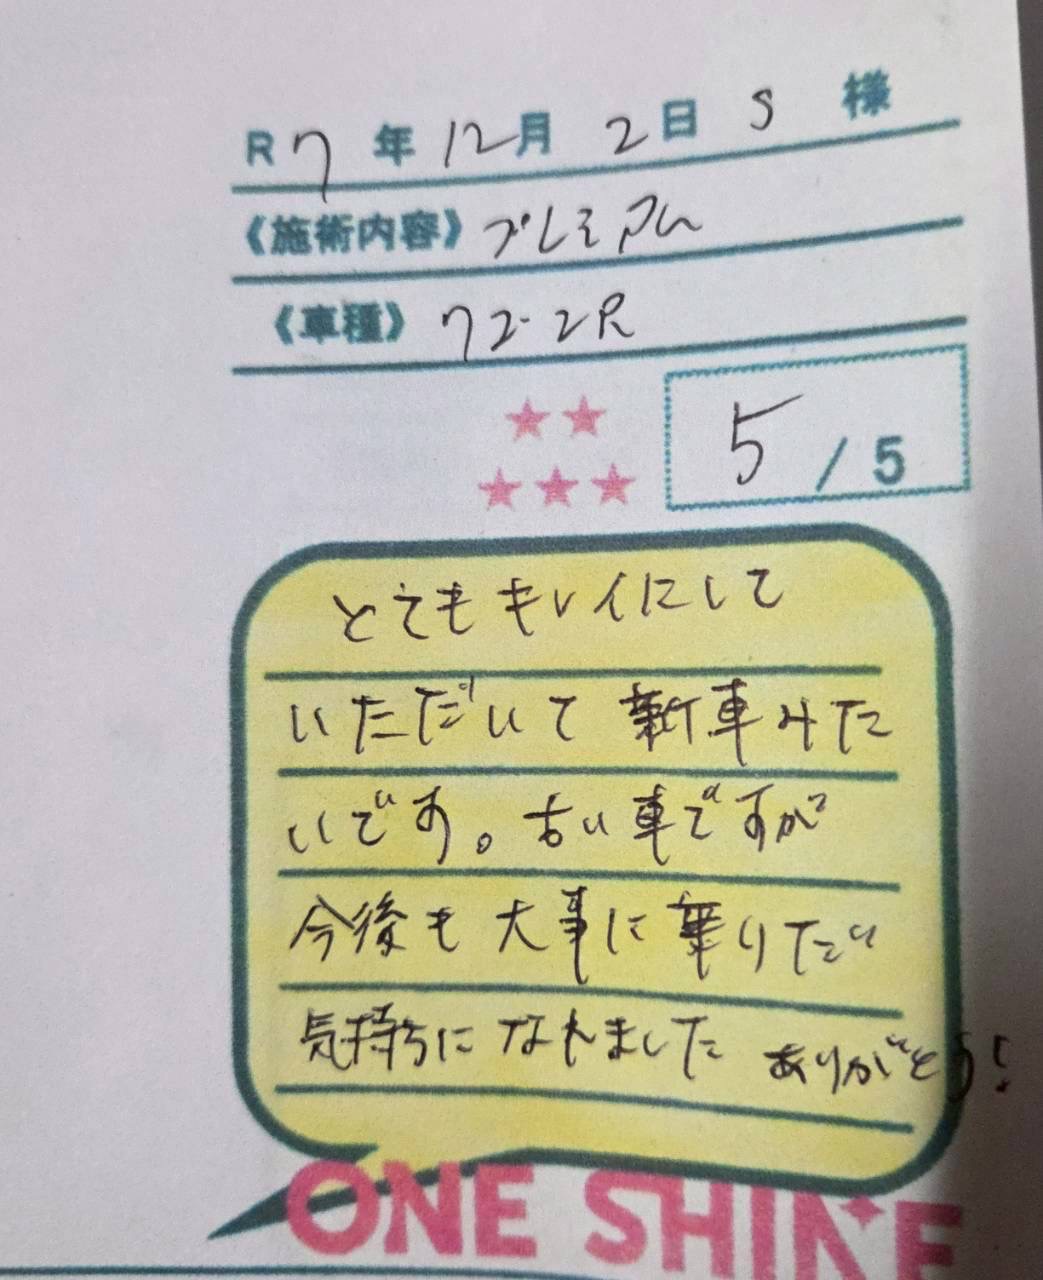 R7年12月2日 S 様
《施術内容》プレミアム
《車種》72-2R
5/5
とてもキレイにして
いただいて新車みた
いです。古い車ですが
今後も大事に乗りたい
気持ちになれました ありがとう!
ONE SHINE